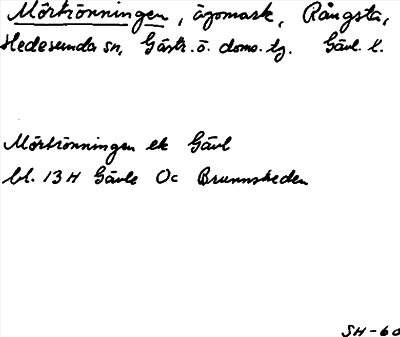 Mörtrönningen, ägomark, Rångsta,
Hedesunda sn, Gästr. ö. doms. tg. Gävl. l.
Mörtrönningen ek Gävl
bl. 13 H Gävle Oc Brunnsheden
SH-60